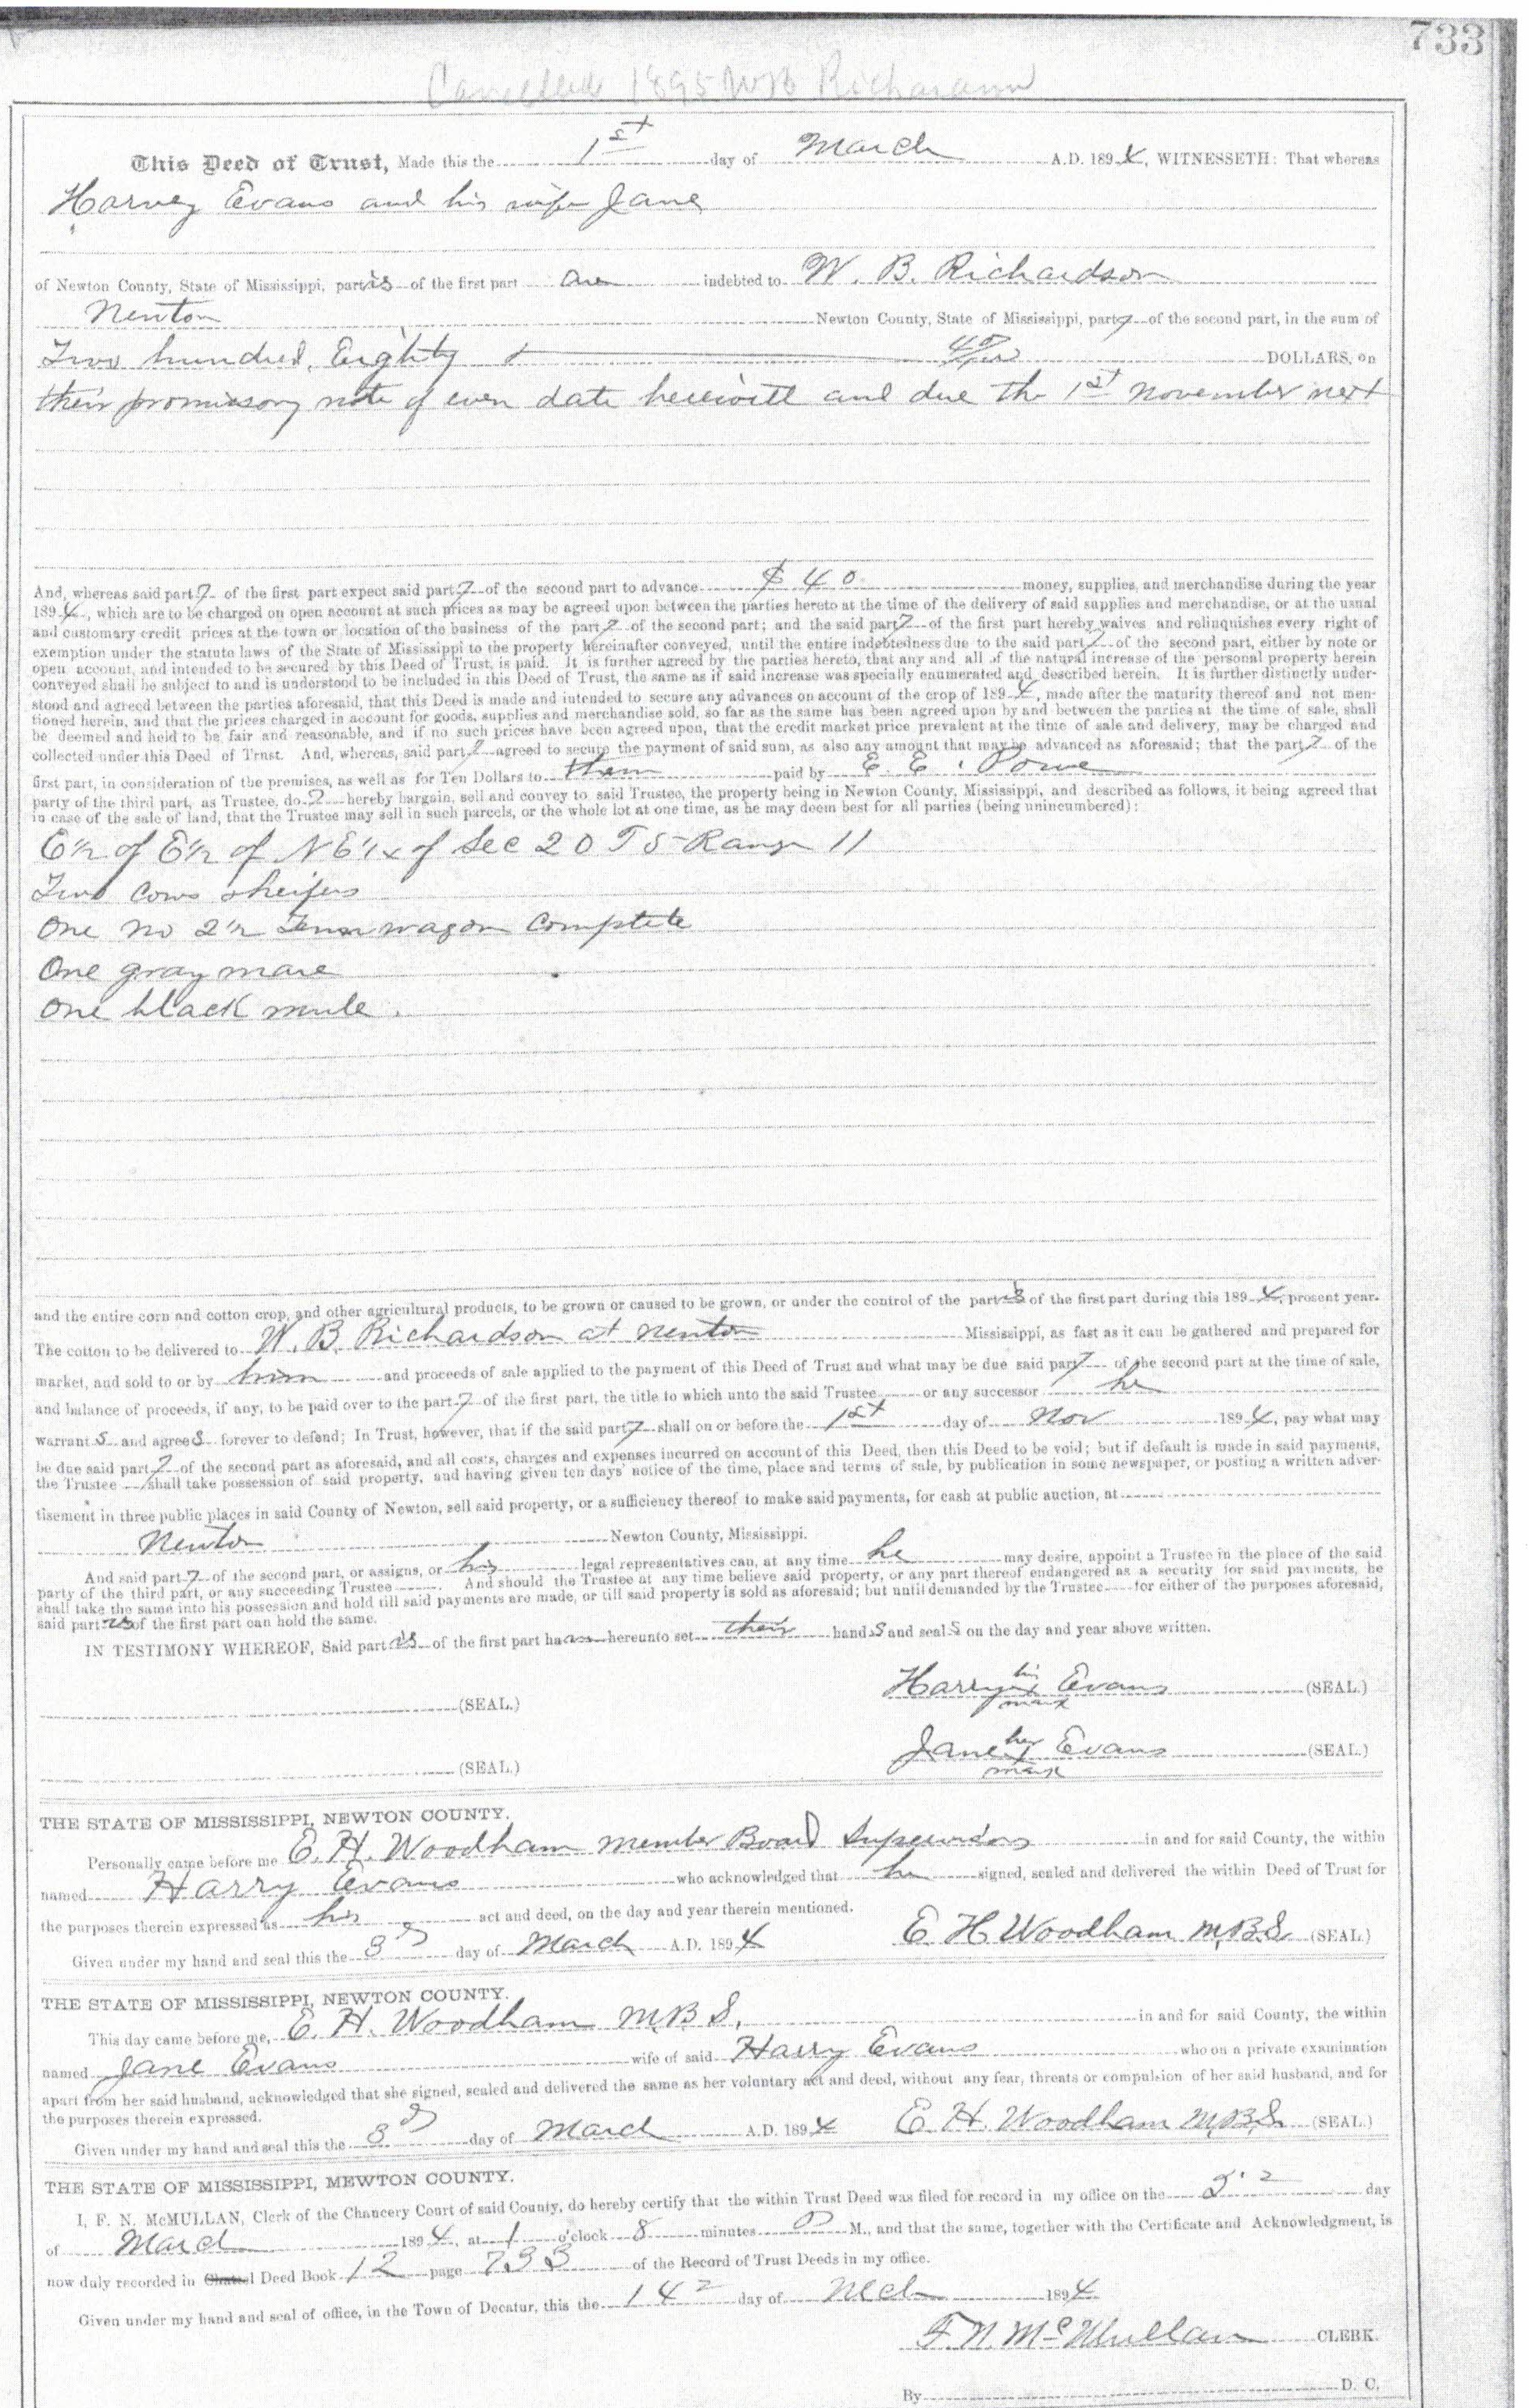 733
Cancelled 1895 WB Richardson
This Deed of Trust, Made this the 1st day of March A.D. 1894, WITNESSETH: That whereas
Harvey Evans and his wife Jane
of Newton County, State of Mississippi, part is of the first part are indebted to W. B. Richardson
Newton Newton County, State of Mississippi, party of the second part, in the sum of
Two hundred, Eighty + DOLLARS, on
their promissory note of even date herewith and due the 1st November next
And, whereas said party of the first part expect said party of the second part to advance $40 money, supplies, and merchandise during the year
1894, which are to be charged on open account at such prices as may be agreed upon between the parties hereto at the time of the delivery of said supplies and merchandise, or at the usual
and customary credit prices at the town or location of the business of the party of the second part; and the said party of the first part hereby waives and relinquishes every right of
exemption under the statute laws of the State of Mississippi to the property hereinafter conveyed, until the entire indebtedness due to the said party of the second part, either by note or
open account, and intended to be secured by this Deed of Trust, is paid. It is further agreed by the parties hereto, that any and all of the natural increase of the personal property herein
conveyed shall be subject to and is understood to be included in this Deed of Trust, the same as if said increase was specially enumerated and described herein. It is further distinctly under-
stood and agreed between the parties aforesaid, that this Deed is made and intended to secure any advances on account of the crop of 1894, made after the maturity thereof and not men-
tioned herein, and that the prices charged in account for goods, supplies and merchandise sold, so far as the same has been agreed upon by and between the parties at the time of sale, shall
be deemed and held to be fair and reasonable, and if no such prices have been agreed upon, that the credit market price prevalent at the time of sale and delivery, may be charged and
collected under this Deed of Trust. And, whereas, said party agreed to secure the payment of said sum, as also any amount that may be advanced as aforesaid; that the party of the
first part, in consideration of the premises, as well as for Ten Dollars to them paid by E. E. Powe
party of the third part, as Trustee, do hereby bargain, sell and convey to said Trustee, the property being in Newton County, Mississippi, and described as follows, it being agreed that
in case of the sale of land, that the Trustee may sell in such parcels, or the whole lot at one time, as he may deem best for all parties (being unincumbered):
E½ of E½ of NE¼ of Sec 20 T5 Range 11
Two cows & heifers
One no 2½ Tenn wagon complete
One gray mare
One black mule.
and the entire corn and cotton crop, and other agricultural products, to be grown or caused to be grown, or under the control of the part is of the first part during this 1894, present year.
The cotton to be delivered to W. B. Richardson at Newton Mississippi, as fast as it can be gathered and prepared for
market, and sold to or by him and proceeds of sale applied to the payment of this Deed of Trust and what may be due said party of the second part at the time of sale,
and balance of proceeds, if any, to be paid over to the party of the first part, the title to which unto the said Trustee or any successor he
warrant s and agree s forever to defend; In Trust, however, that if the said party shall on or before the 1st day of Nov 1894, pay what may
be due said party of the second part as aforesaid, and all costs, charges and expenses incurred on account of this Deed, then this Deed to be void; but if default is made in said payments,
the Trustee shall take possession of said property, and having given ten days' notice of the time, place and terms of sale, by publication in some newspaper, or posting a written adver-
tisement in three public places in said County of Newton, sell said property, or a sufficiency thereof to make said payments, for cash at public auction, at
Newton Newton County, Mississippi.
And said party of the second part, or assigns, or his legal representatives can, at any time he may desire, appoint a Trustee in the place of the said
party of the third part, or any succeeding Trustee. And should the Trustee at any time believe said property, or any part thereof endangered as a security for said payments, he
shall take the same into his possession and hold till said payments are made, or till said property is sold as aforesaid; but until demanded by the Trustee for either of the purposes aforesaid,
said part is of the first part can hold the same.
IN TESTIMONY WHEREOF, Said part is of the first part ha hereunto set their hands and seals on the day and year above written.
Harry his x mark Evans (SEAL.)
(SEAL.)
Jane her x mark Evans (SEAL.)
(SEAL.)
THE STATE OF MISSISSIPPI, NEWTON COUNTY.
Personally came before me E. H. Woodham member Board Supervisors in and for said County, the within
named Harry Evans who acknowledged that he signed, sealed and delivered the within Deed of Trust for
the purposes therein expressed as his act and deed, on the day and year therein mentioned.
Given under my hand and seal this the 3d day of March A.D. 1894 E H Woodham M,B,S. (SEAL.)
THE STATE OF MISSISSIPPI, NEWTON COUNTY.
This day came before me, E. H. Woodham M.B.S, in and for said County, the within
named Jane Evans wife of said Harry Evans who on a private examination
apart from her said husband, acknowledged that she signed, sealed and delivered the same as her voluntary act and deed, without any fear, threats or compulsion of her said husband, and for
the purposes therein expressed.
Given under my hand and seal this the 3d day of March A.D. 1894 E. H. Woodham M,B,S. (SEAL.)
THE STATE OF MISSISSIPPI, MEWTON COUNTY.
I, F. N. McMULLAN, Clerk of the Chancery Court of said County, do hereby certify that the within Trust Deed was filed for record in my office on the day
of March 1894, at 1 o'clock 8 minutes P M., and that the same, together with the Certificate and Acknowledgment, is
now duly recorded in Chattel Deed Book 12 page 733 of the Record of Trust Deeds in my office.
Given under my hand and seal of office, in the Town of Decatur, this the 14 day of Mch 1894
F. N. McMullan CLERK.
By D. C.